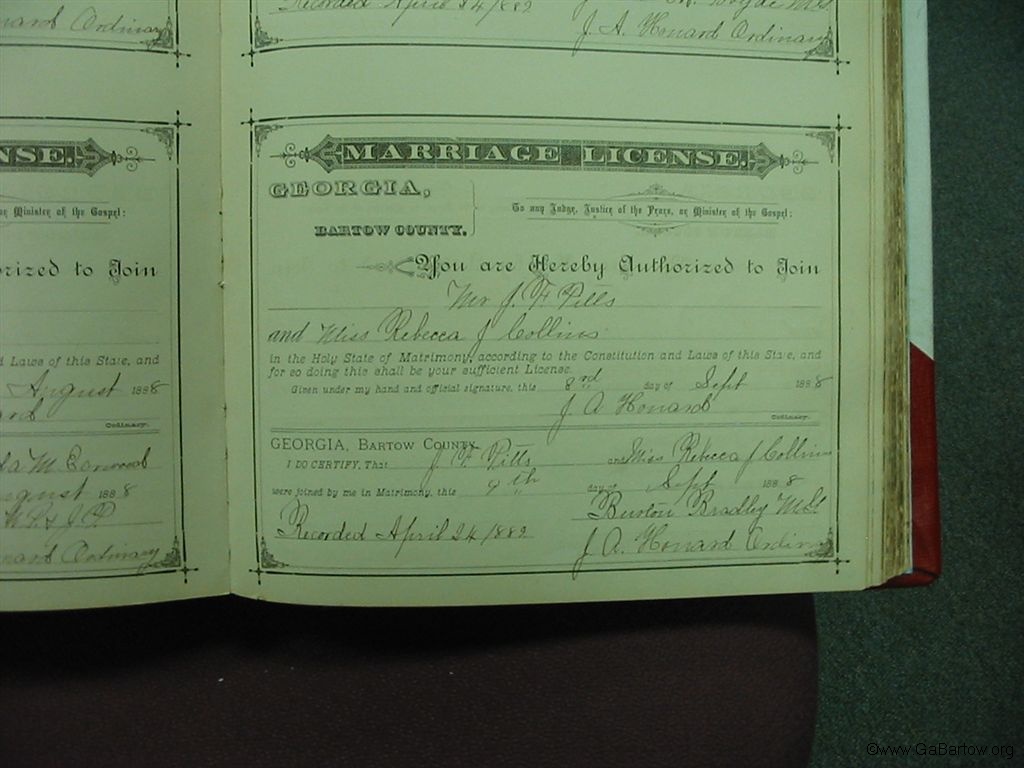 onard Ordinary
Recorded April 24/882
J. A. Honard Ordinary
NSE.
or Minister of the Gospel:
orized to Join
d Laws of this State, and
August 1888
ard
Ordinary.
da M
August 1888
& J P
onard Ordinary
MARRIAGE LICENSE.
GEORGIA,
To any Judge, Justice of the Peace, or Minister of the Gospel:
BARTOW COUNTY.
You are Hereby Authorized to Join
Mr J. F Pitts
and Miss Rebecca J Collins
in the Holy State of Matrimony, according to the Constitution and Laws of this State, and
for so doing this shall be your sufficient License.
Given under my hand and official signature, this 8rd day of Sept 1888
J A Honard
Ordinary.
GEORGIA, Bartow County
I DO CERTIFY, That J. F. Pitts and Miss Rebecca J Collins
were joined by me in Matrimony, this 9th day of Sept 1888
Burton Bradley
Recorded April 24/882
J A. Honard Ordin
©www.GaBartow.org